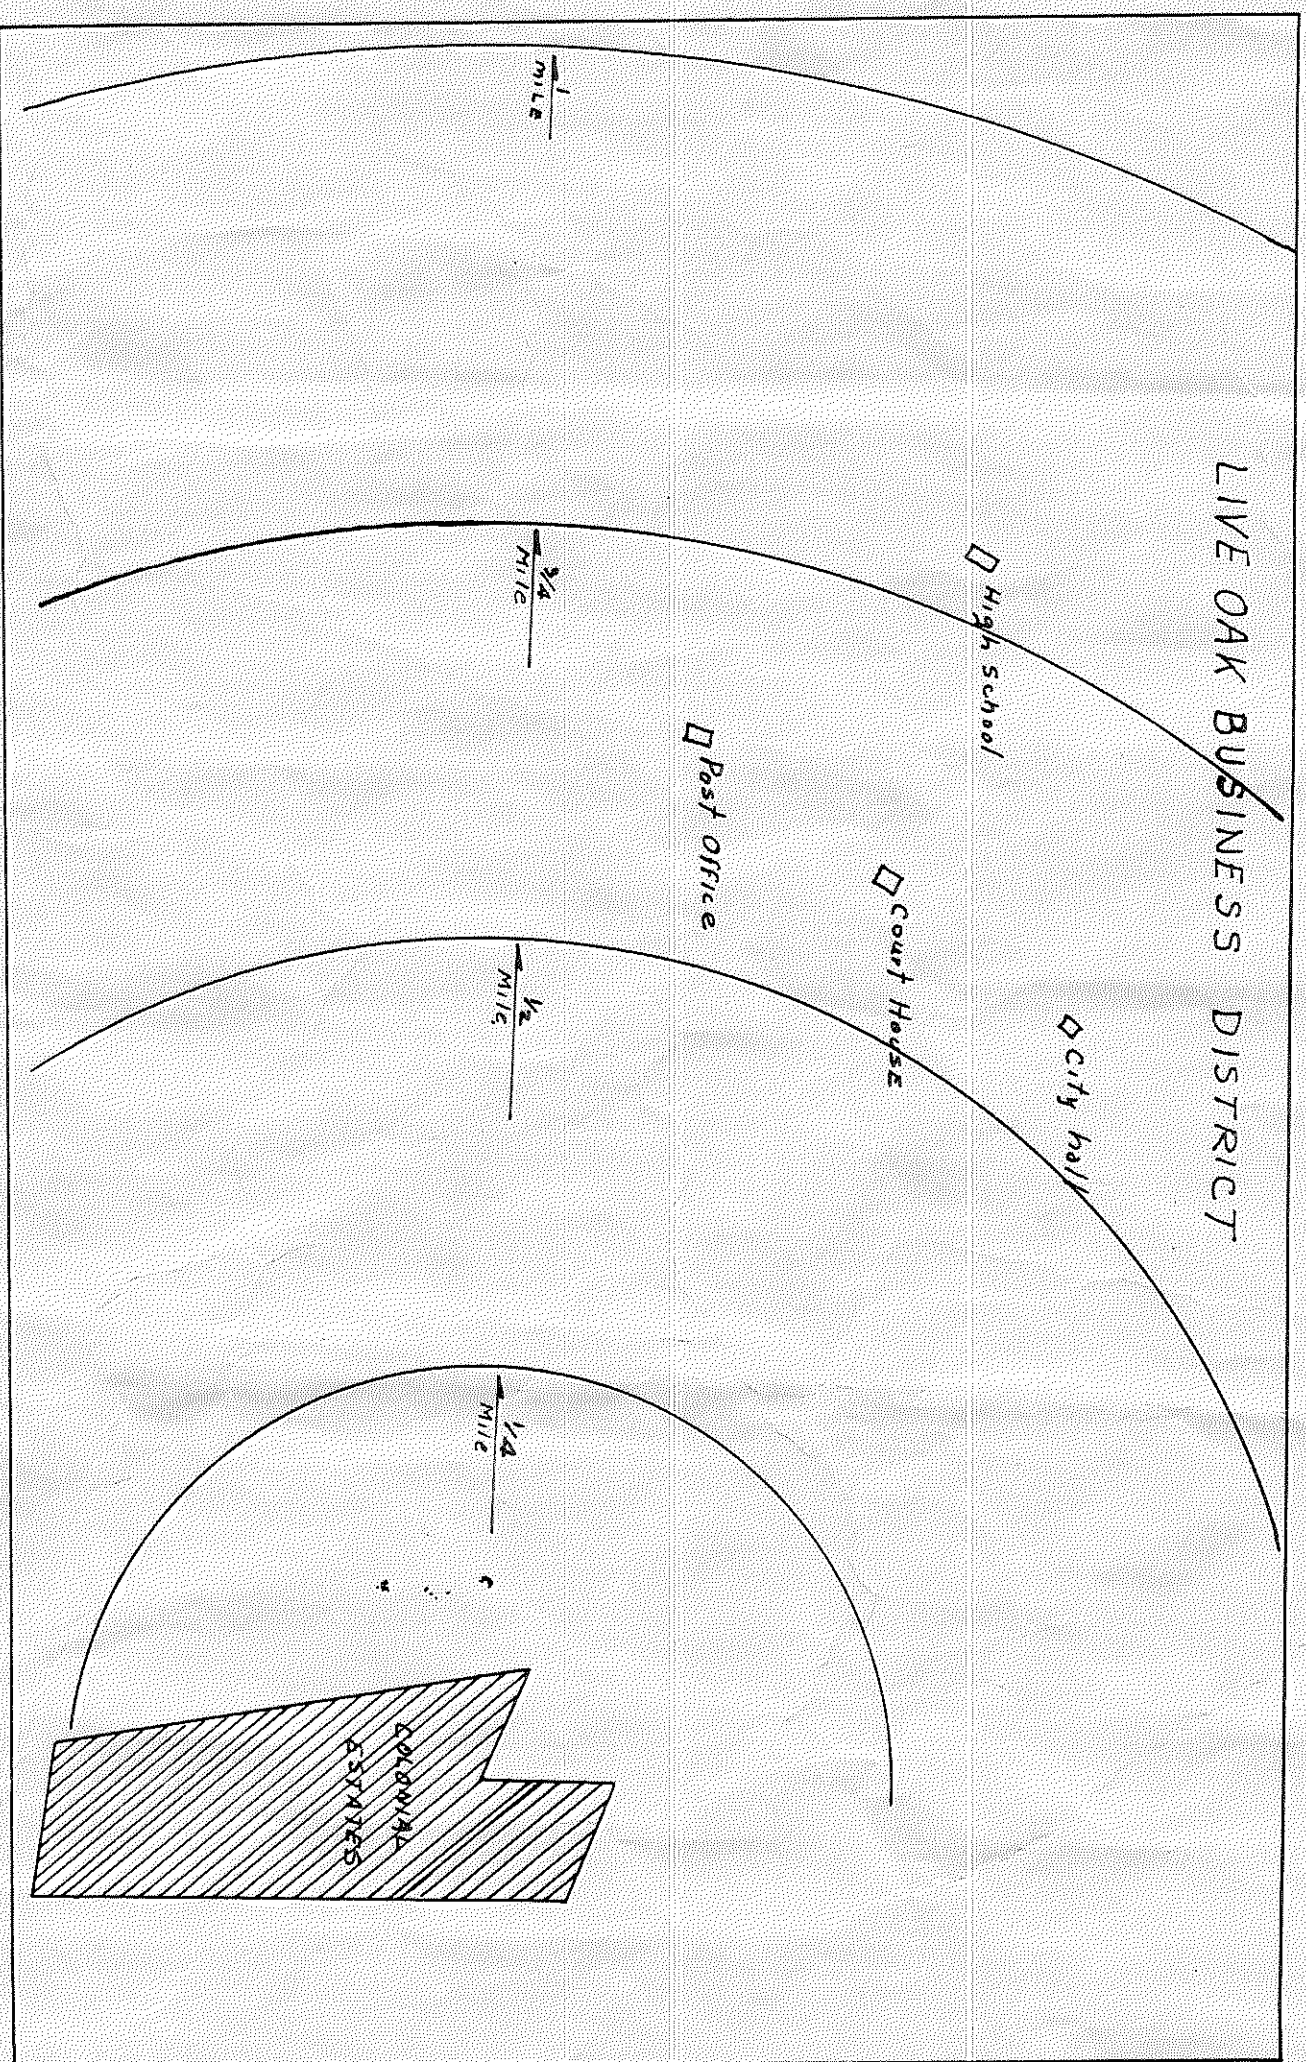 LIVE OAK BUSINESS DISTRICT
High School
City hall
Court House
Post Office
1
MILE
3/4
Mile
1/2
Mile
1/4
Mile
COLONIAL
ESTATES